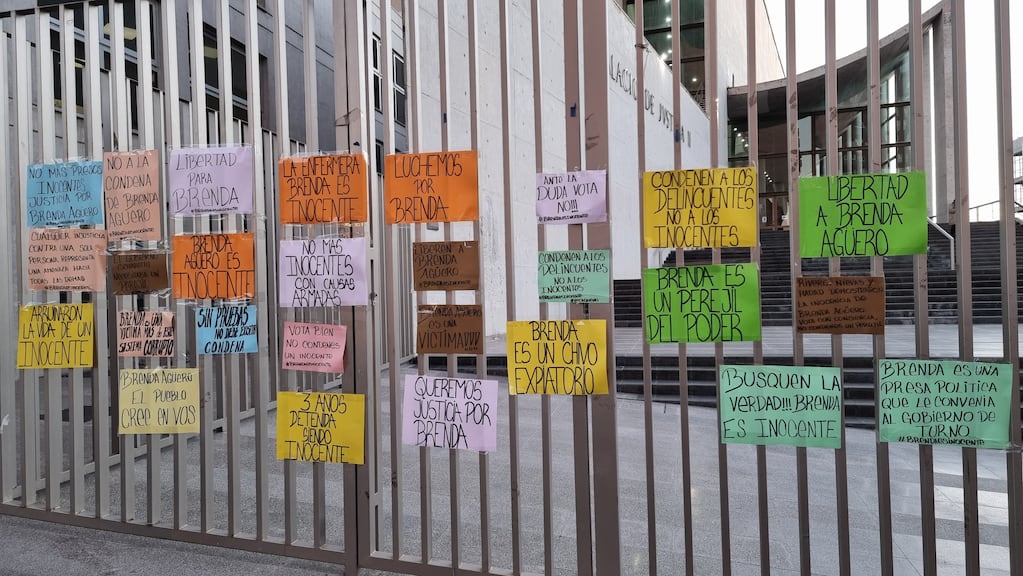 NO MÁS PRESOS
INOCENTES
JUSTICIA POR
BRENDA AGÜERO
NO A LA
CONDENA
DE BRENDA
AGÜERO
LIBERTAD
PARA
BRENDA
LA ENFERMERA
BRENDA ES
INOCENTE
LUCHEMOS
POR
BRENDA
ANTE LA
DUDA VOTA
NO!!!
CONDENEN A LOS
DELINCUENTES
NO A LOS
INOCENTES
LIBERTAD
A BRENDA
AGÜERO
LACIO DE JUSTICIA II
CUALQUIER INJUSTICIA
CONTRA UNA SOLA
PERSONA, REPRESENTA
UNA AMENAZA HACIA
TODAS LAS DEMÁS
BRENDA
AGÜERO ES
INOCENTE
NO MAS
INOCENTES
CON CAUSAS
ARMADAS
LIBEREN A
BRENDA
AGÜERO
CONDENEN A LOS
DELINCUENTES
NO A LOS
INOCENTES
BRENDA ES
UN PEREJIL
DEL PODER
LA INOCENCIA DE
BRENDA AGÜERO
ARRUINARON
LA VIDA DE UN
INOCENTE
BRENDA UNA
VICTIMA MÁS DE ESTE
SISTEMA CORRUPTO
SIN PRUEBAS
NO DEBE EXISTIR
CONDENA
VOTA BIEN
NO CONDENES
UN INOCENTE
BRENDA
ES UNA
VICTIMA!!!
BRENDA
ES UN CHIVO
EXPIATORO
BRENDA AGÜERO
EL PUEBLO
CREE EN VOS
3 AÑOS
DETENIDA
SIENDO
INOCENTE
QUEREMOS
JUSTICIA POR
BRENDA
BUSQUEN LA
VERDAD!!! BRENDA
ES INOCENTE
BRENDA ES UNA
PRESA POLITICA
QUE LE CONVENIA
AL GOBIERNO DE
TURNO
#BRENDAESINOCENTE